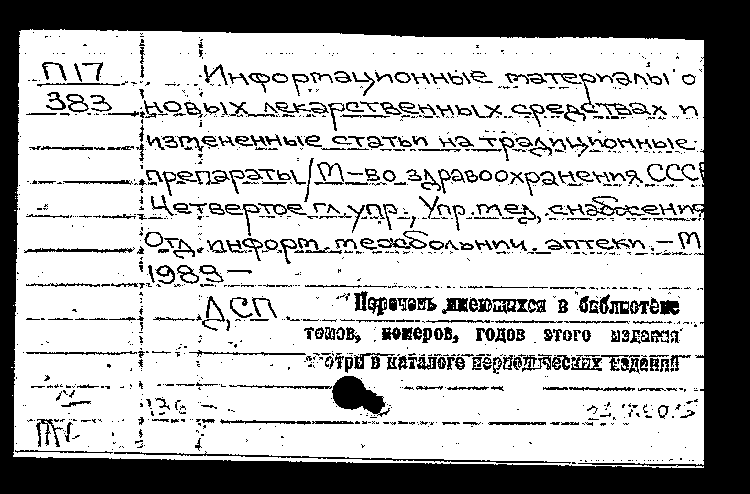 П17
383
Информационные материалы о
новых лекарственных средствах и
измененные статьи на традиционные
препараты / М-во здравоохранения СССР
Четвертое гл. упр., Упр. мед. снабжения
Отд. информ. больнич. аптеки. – М
1989 –
ДСП
Перечень имеющихся в библиотеке
томов, номеров, годов этого издания
смотри в каталоге периодических изданий
136 –